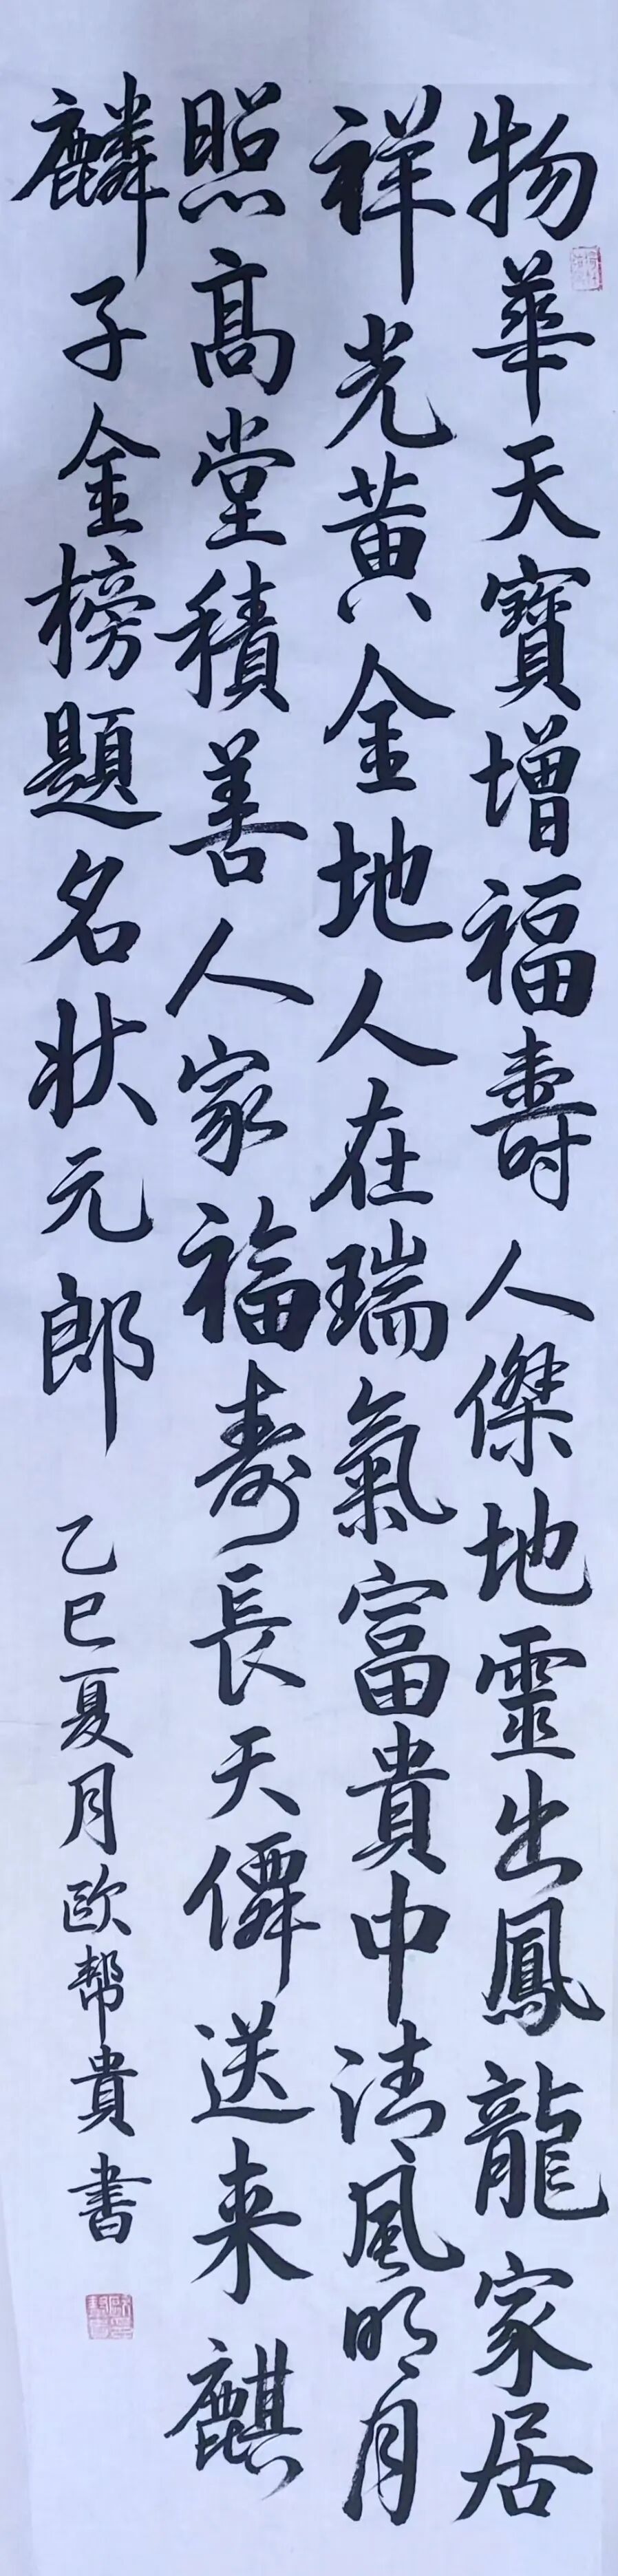 物華天寶增福壽人傑地靈出鳳龍家居
祥光黃金地人在瑞氣富貴中清風明月
照高堂積善人家福壽長天僊送来麒
麟子金榜題名状元郎
乙巳夏月歐幫貴書